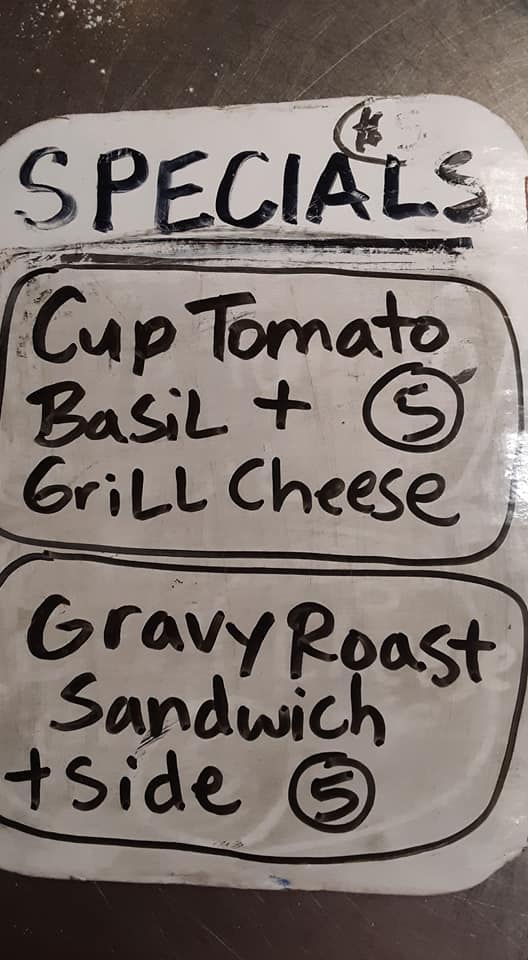 SPECIALS
Cup Tomato
Basil + 5
Grill Cheese
Gravy Roast
Sandwich
+ Side 5